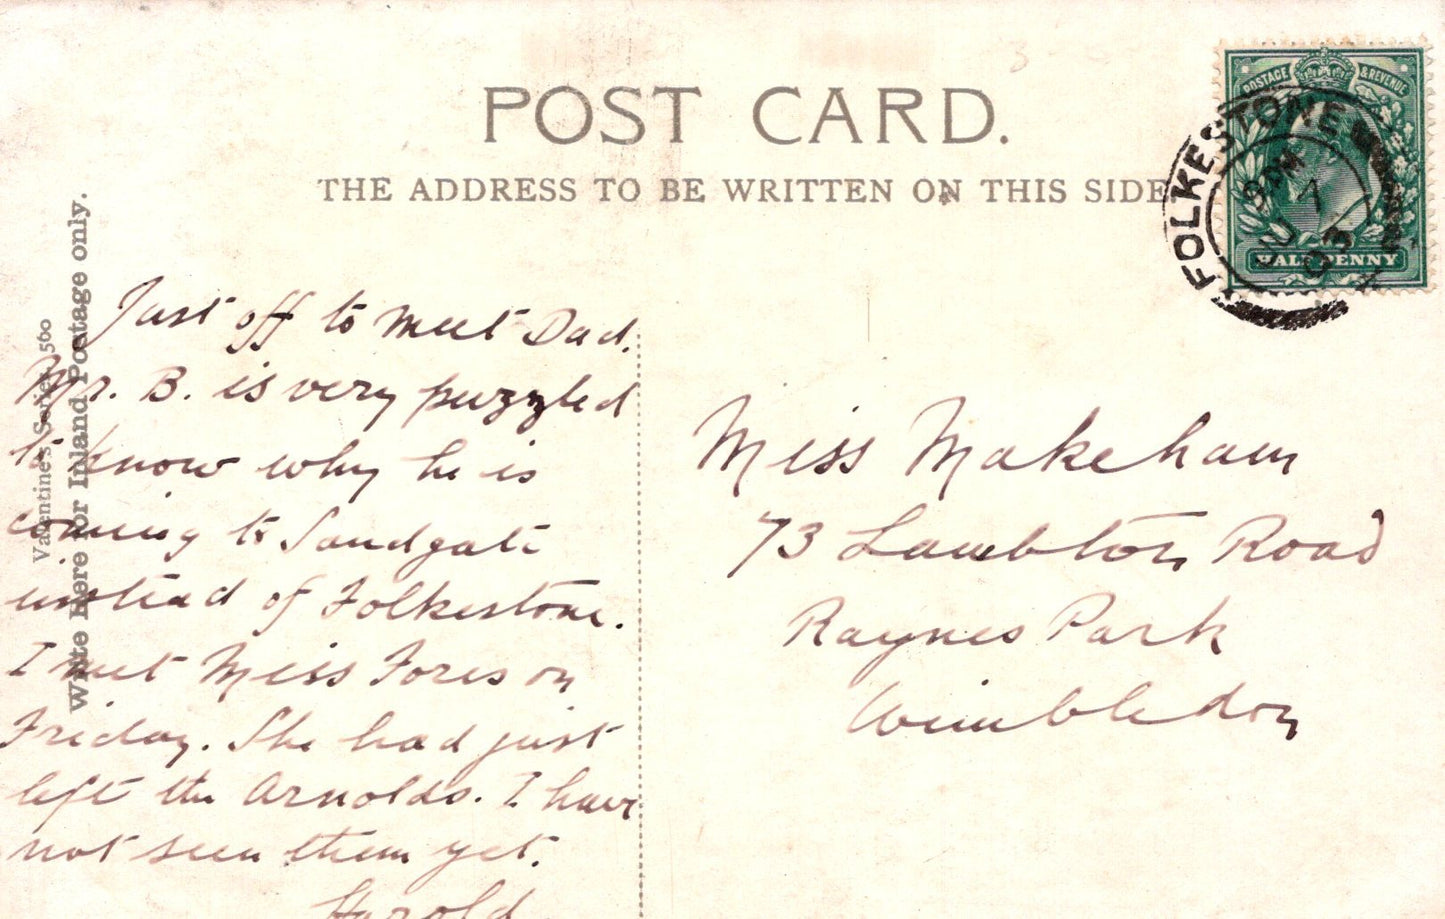 POST CARD.
THE ADDRESS TO BE WRITTEN ON THIS SIDE
POSTAGE & REVENUE
HALF PENNY
FOLKESTONE
03
Valentine's Series 560
Write Here for Inland Postage only.
Just off to meet Dad.
Mr. B. is very puzzled
to know why he is
coming to Sandgate
instead of Folkestone.
I met Miss Fores on
Friday. She had just
left the Arnolds. I have
not seen them yet.
Harold
Miss Makeham
73 Lambton Road
Raynes Park
Wimbledon